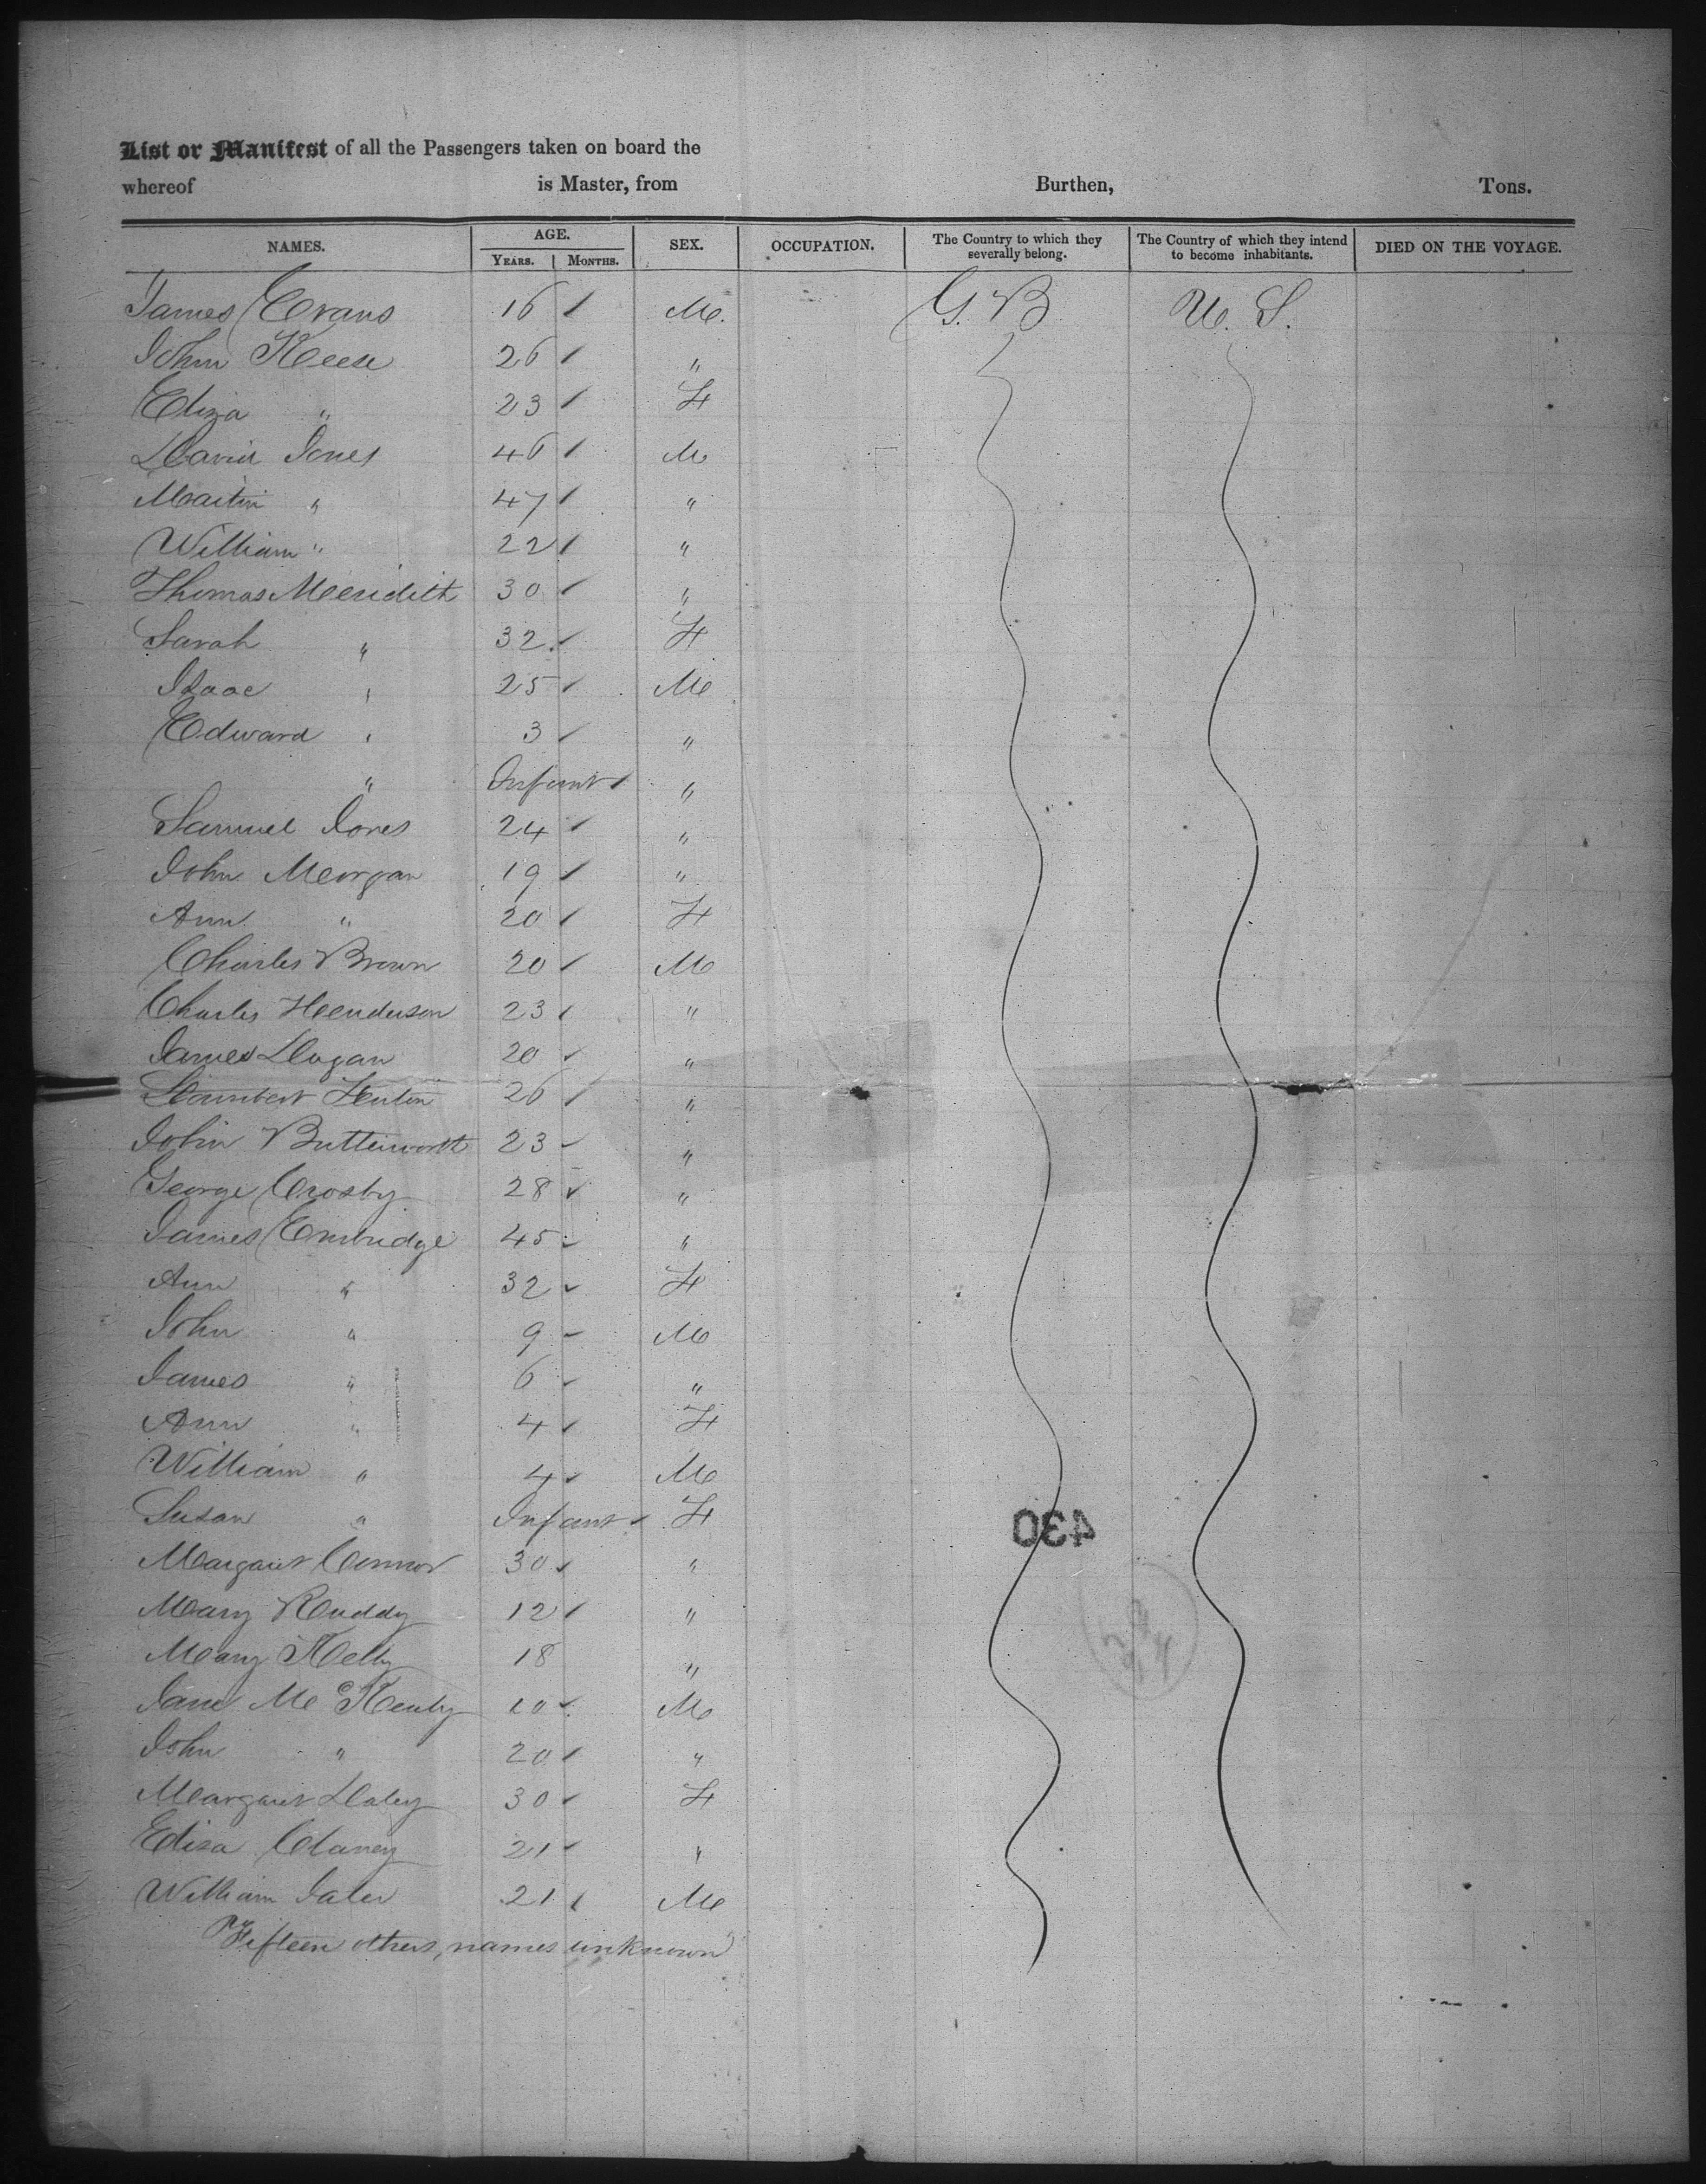 List or Manifest of all the Passengers taken on board the
whereof is Master, from Burthen, Tons.
NAMES. AGE. YEARS. MONTHS. SEX. OCCUPATION. The Country to which they severally belong. The Country of which they intend to become inhabitants. DIED ON THE VOYAGE.
James Evans 16 M. G.B U.S.
John Reese 26 "
Eliza " 23 F
David Jones 46 M
Martin " 47 "
William " 22 "
Thomas Meridith 30 "
Sarah " 32 F
Isaac " 25 M
Edward " 3 "
" Infant "
Samuel Jones 24 "
John Morgan 19 "
Ann " 20 F
Charles Brown 20 M
Charles Henderson 23 "
James Dugan 20 "
26 "
John Butterworth 23 "
George Crosby 28 "
James 45 "
Ann " 32 F
John " 9 M
James " 6 "
Ann " 4 F
William " 4 M
Susan " Infant F
430
Margaret Connor 30 "
Mary Ruddy 12 "
Mary Kelly 18 "
Mc 20 M
John " 20 "
Margaret Daley 30 F
Eliza Clancy 21 "
William 21 M
Fifteen others, names unknown